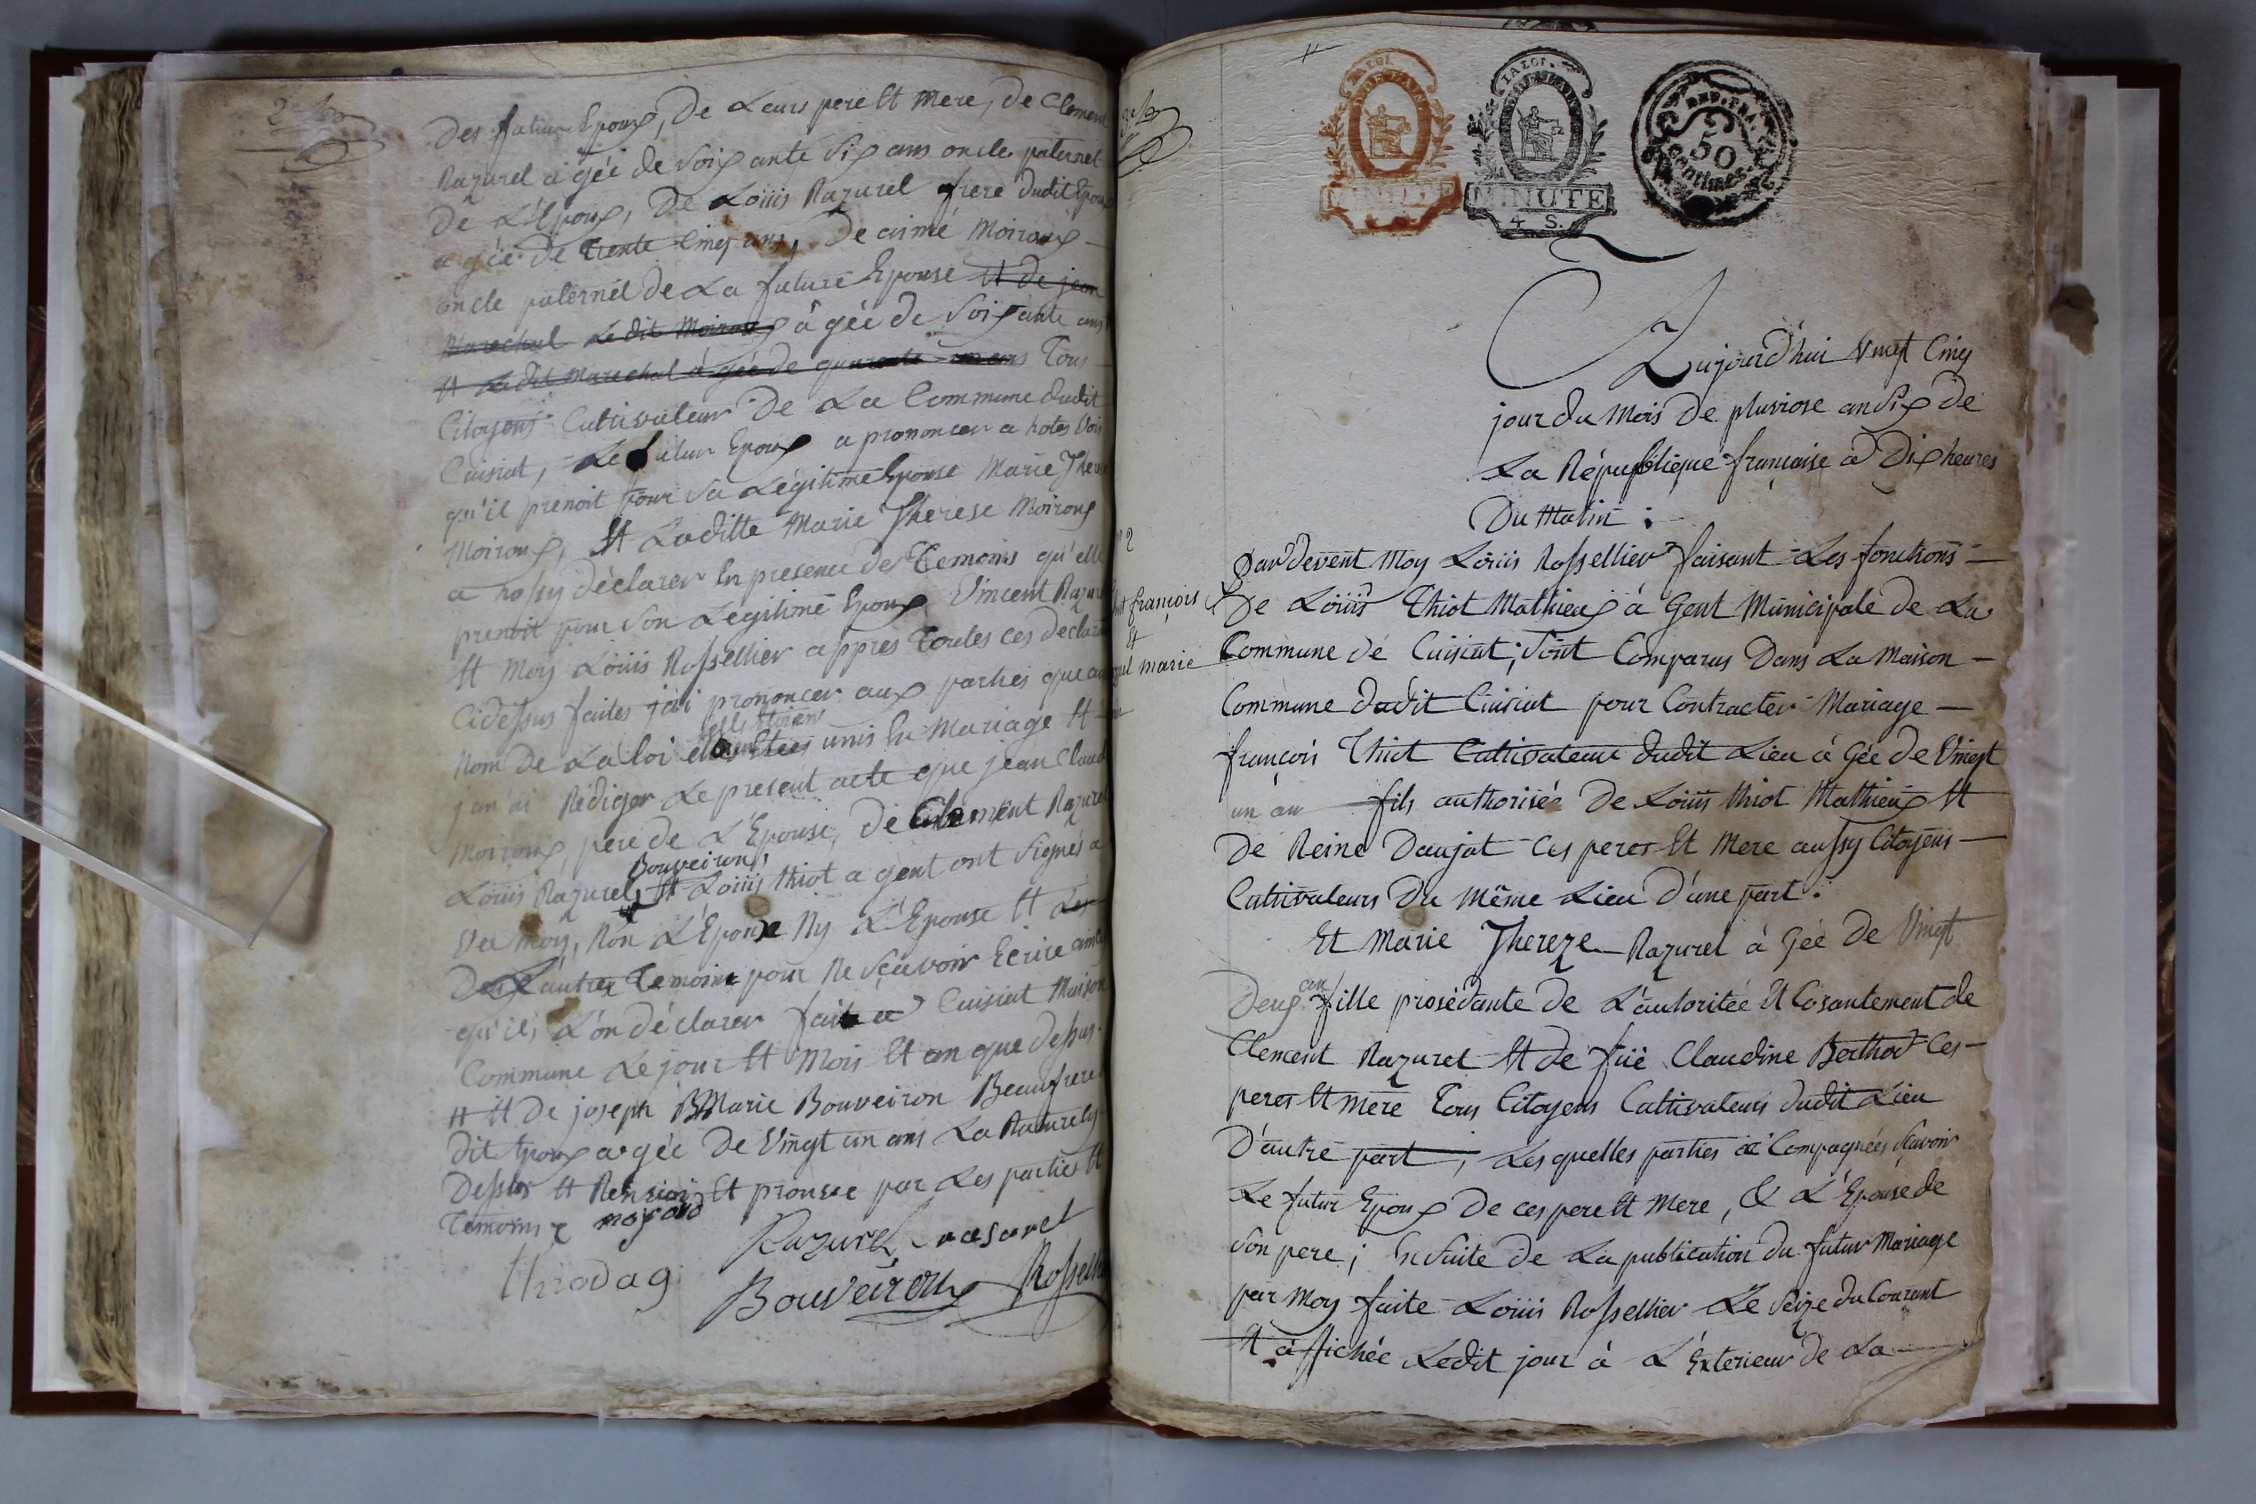 des futur Epoux, De Leurs pere Et mere, de Clement
Razurel agéé de soixante six ans oncle paternel
De L'Epoux, De Loüis Razurel frere dudit Epoux
agéé de trente cinq ans, De aimé Moiroux
oncle paternel de La future Epouse Et de jean
Marechal Ledit Moiroux âgéé de Soixante ans
Et Ledit Marechal âgéé de quarante un ans Tous
Citoyens Cultivateur De La Commune dudit
Cuisiat, Le futur Epoux a prononcer a hotes Voix
qu'il prenoit pour Sa Légitime Epouse Marie Therese
Moiroux, Et Laditte Marie Therese Moiroux
a hossy déclarer En presence des Temoins qu'elle
prenoit pour Son Légitime Epoux Vincent Razurel
Et Moy Loüis Rossellier appres Toutes ces declara
Cidessus faites j'ai prononcer aux parties que au
Nom de La loi Etoient
unis En Mariage Et
j'an ai Rédiger Le present acte que jean Claude
Moiroux, pere de L'Epouse, de Clement Razurel
Bouveiron,
Loüis Razurel, Et Loüis thiot agent ont Signés a
Vec moy, Non L'Epoux Ny L'Epouse Et Les
Deux autres Temoins pour Ne Sçavoir Ecrire ainsi
qu'ils L'on déclarer fait a Cuisiat Maison
Commune Le jour Et Mois Et an que dessus.
Et de joseph Marie Bouveiron Beaufrere
dit Epoux agéé De Vingt un ans La Raturely
Dessus Et Renvoi Et prouvee par Les parties Et
Temoins
Razurel rasurel
thiodag
Bouveiron Rosselli
LA LOI.
MINUTE
LA LOI.
MINUTE
4 S.
REP. FRA.
50
centimes
Aujourd'hui Vingt Cinq
jour du Mois De pluviose an Six De
La République française a Dix heures
Du Matin :
2
Par devent Moy Loüis Rossellier faisant Les fonctions
thiot françois
De Loüis Thiot Mathieux à Gent Municipale de La
Et
Commune de Cuisiat; Sont Comparus Dans La Maison
Razurel marie
Commune dudit Cuisiat pour Contracter Mariage
françois Thiot Cultivateur dudit Lieu à Gée de Vingt
un an fils authorisée De Loüis thiot Mathieux Et
De Reine Daujat Ces peres Et Mere aussy Citoyens
Cultivateurs Du Même Lieu D'une part.
Et Marie Thereze Razurel à Gée De Vingt
Deux an fille prosédante de L'autoritée Et Cosantement de
Clement Razurel Et de füe Claudine Berthod Ces
peres Et Mere Tous Citoyens Cultivateurs dudit Lieu
D'autre part; Les quelles parties a Compagnées Scavoir
Le futur Epoux De ces pere Et Mere, & L'Epouse de
Son pere; En Suite de La publication du futur Mariage
par Moy faite Loüis Rossellier Le Seize du Courant
Et à ffichée Ledit jour à L'Exterieur de La